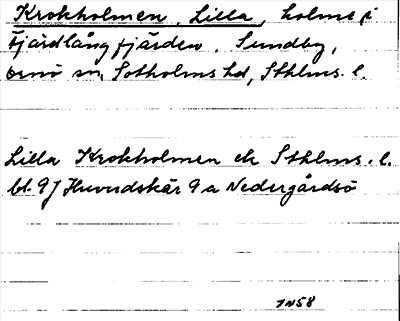 Krokholmen, Lilla, holme i
Fjärdlångfjärden. Sundby,
Ornö sn, Sotholms hd, Sthlms. l.
Lilla Krokholmen ek Sthlms. l.
bl. 97 Huvudskär 9 a Nedergårdsö
1958